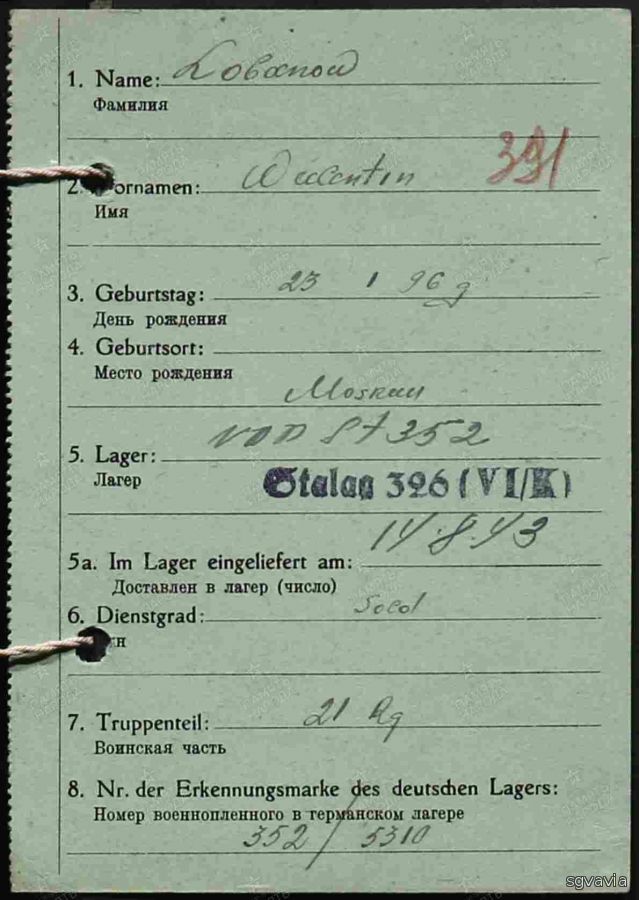 1. Name: Lobanow
Фамилия
391
2. Vornamen: Walentin
Имя
3. Geburtstag: 23 1 96 g
День рождения
4. Geburtsort:
Место рождения
Moskau
von St 352
5. Lager:
Лагер
Stalag 326 (VI/K)
14.8.43
5a. Im Lager eingeliefert am:
Доставлен в лагер (число)
6. Dienstgrad: Sold
7. Truppenteil: 21 Rg
Воинская часть
8. Nr. der Erkennungsmarke des deutschen Lagers:
Номер военнопленного в германском лагере
352 / 5310
sgvavia